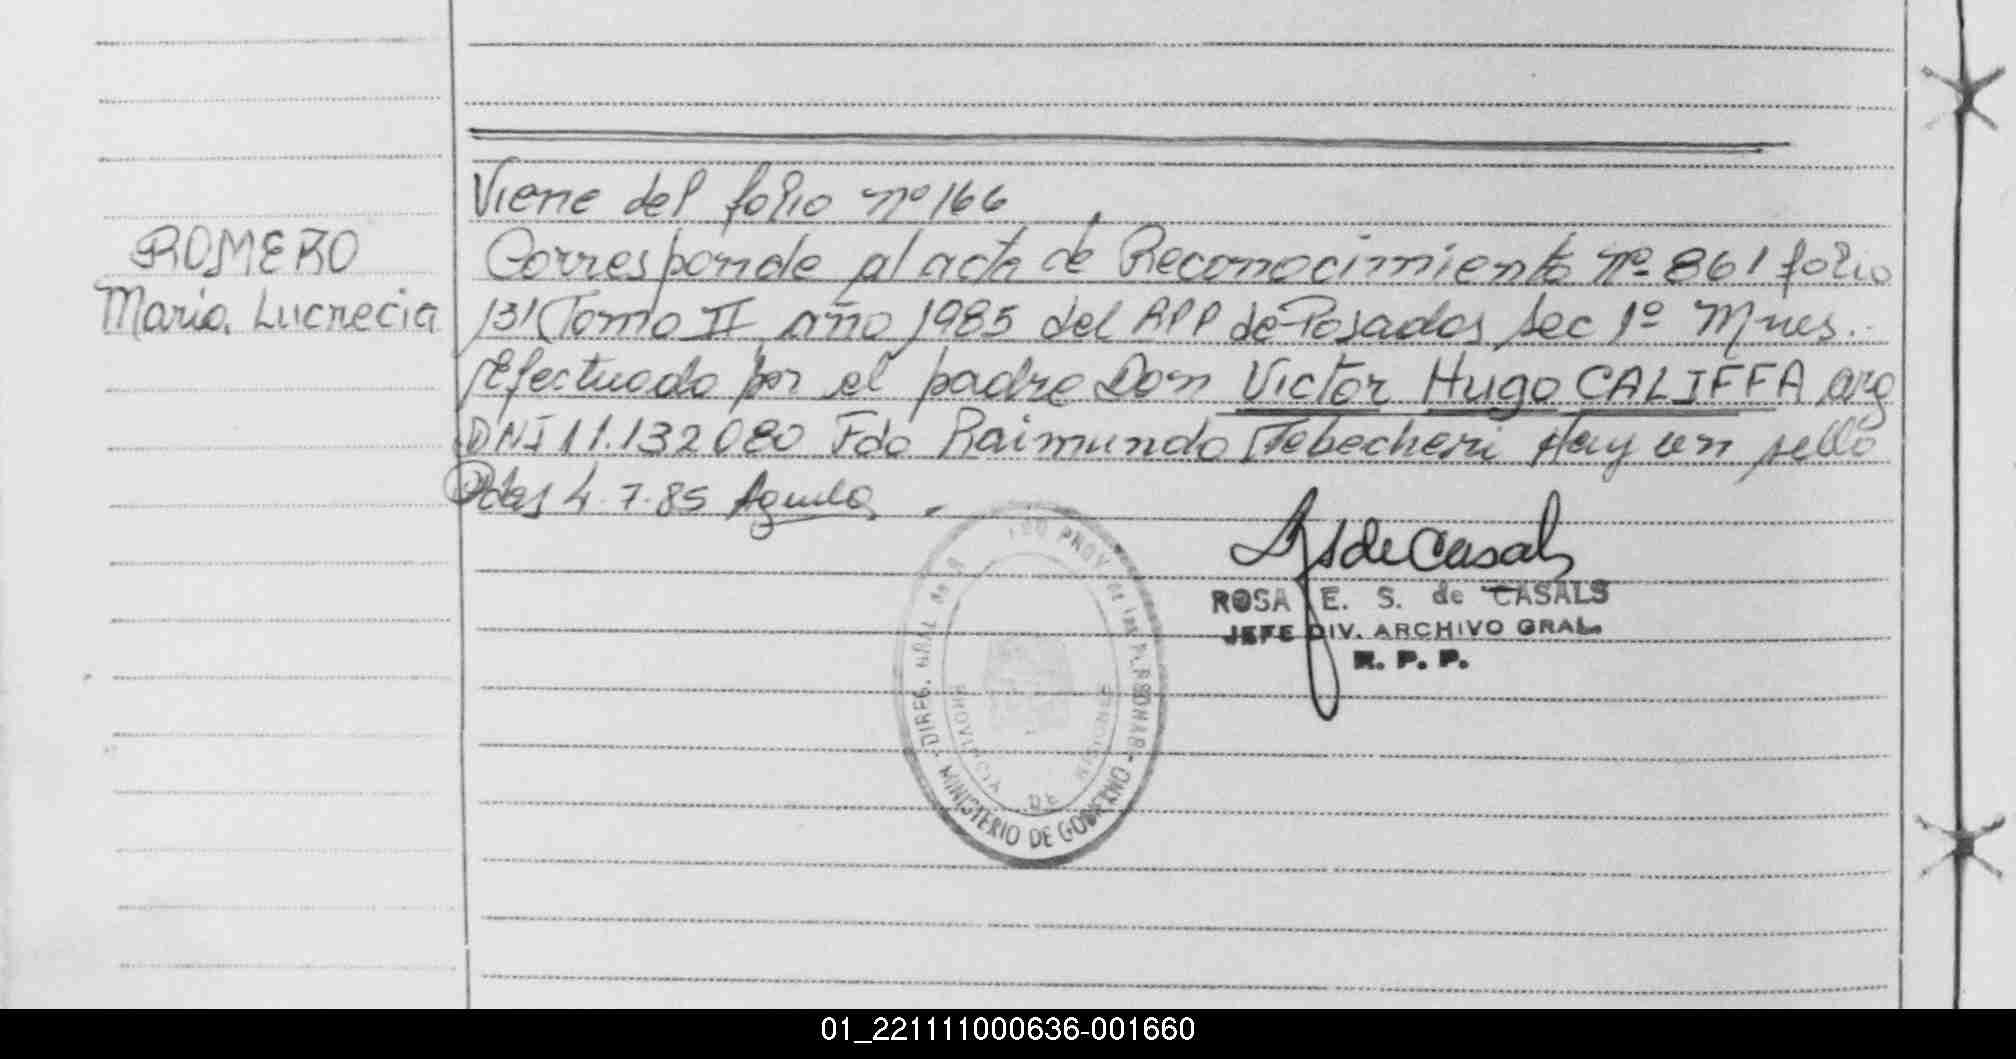 Viene del folio nº 166
ROMERO
Maria Lucrecia
Corresponde al acta de Reconocimiento nº 861 folio
131 Tomo II año 1985 del RPP de Posadas Sec 1º Mnes.
Efectuado por el padre Don Victor Hugo CALIFFA arg
DNI 11.132080 Fdo Raimundo Hay un sello
Pdas 4.7.85
de Casals
ROSA E. S. de CASALS
JEFE DIV. ARCHIVO GRAL.
R. P. P.
DIREC. GRAL PROV de las PERSONAS
MINISTERIO DE GOBIERNO
PROVINCIA DE MISIONES
01_221111000636-001660